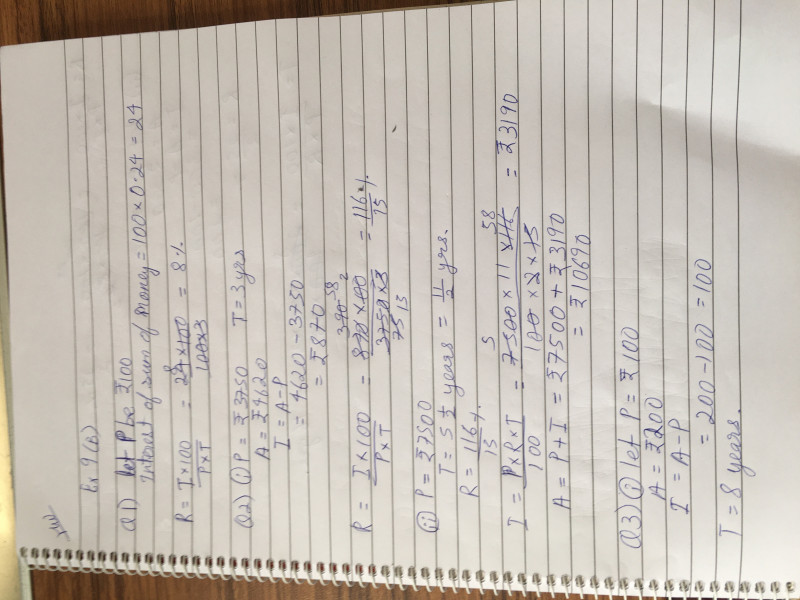 Ex 9(B)
Q1) Let P be ₹100
Interest of sum of money = 100 × 0.24 = 24
R = I×100 / P×T = 24×100 / 100×3 = 8%
Q2) (i) P = ₹3750 T = 3 yrs
A = ₹4620
I = A-P
= 4620 - 3750
= ₹870
R = I×100 / P×T = 870×100 / 3750×3 = 116% / 15
(ii) P = ₹7500
T = 5 1/2 years = 11/2 yrs.
R = 116% / 15
I = P×R×T / 100 = 7500 × 11 × 116 / 100 × 2 × 15 = ₹3190
A = P+I = ₹7500 + ₹3190
= ₹10690
Q3) (i) let P = ₹100
A = ₹200
I = A-P
= 200-100 = 100
T = 8 years.